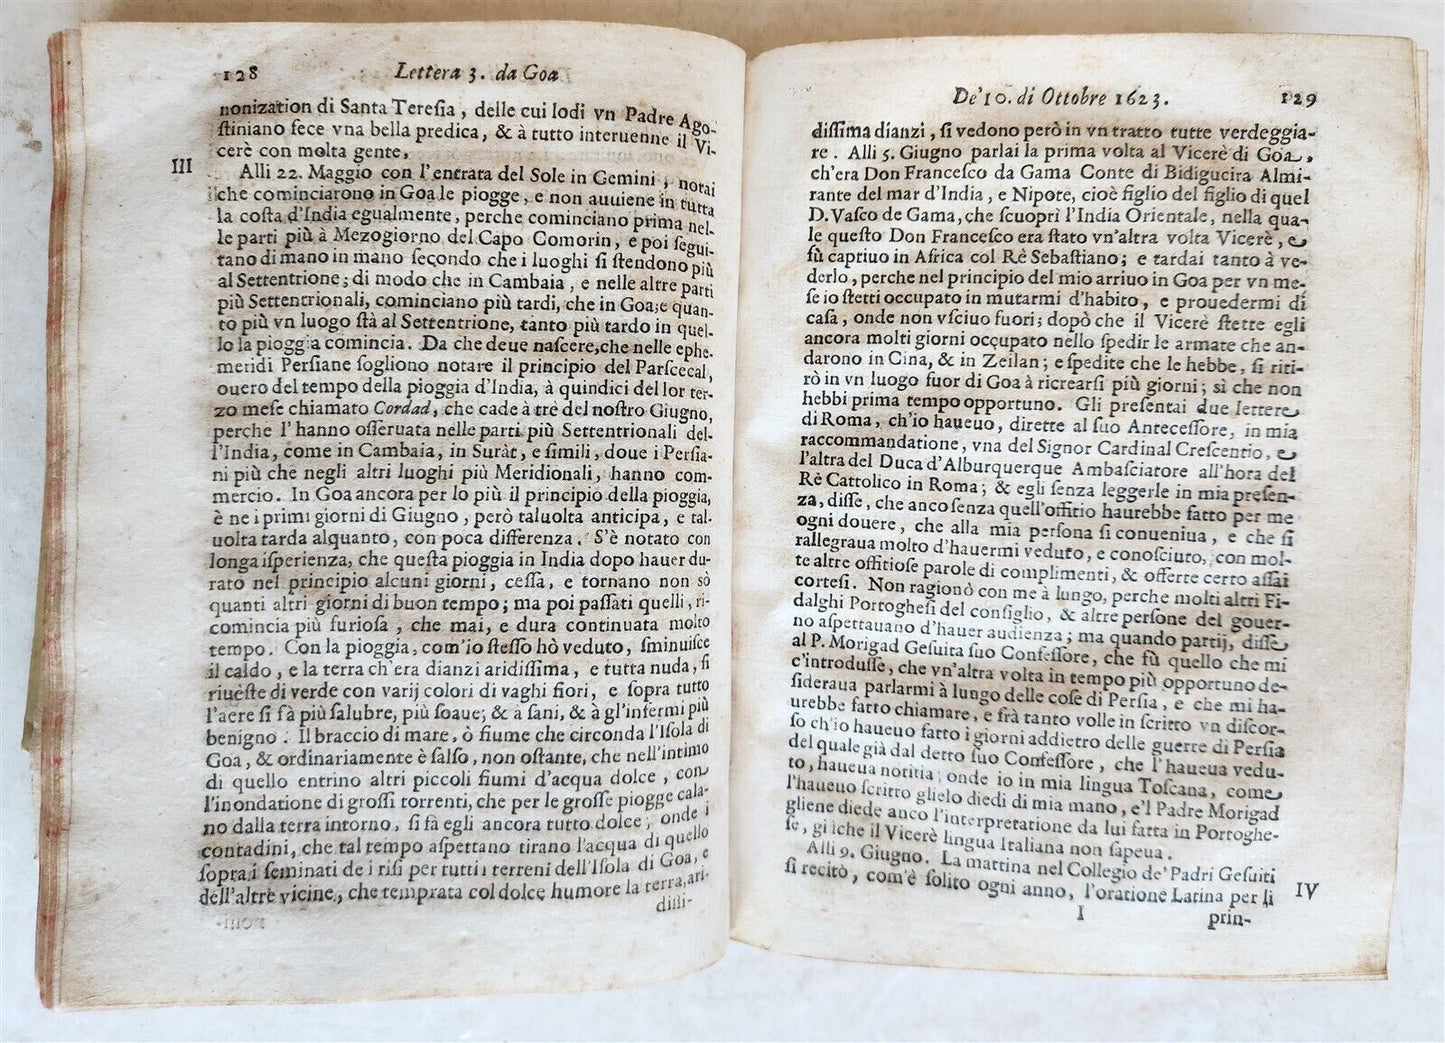 128 Lettera 3. da Goa
nonization di Santa Teresia, delle cui lodi vn Padre Ago-
stiniano fece vna bella predica, & à tutto interuenne il Vi-
cerè con molta gente,
III Alli 22. Maggio con l'entrata del Sole in Gemini, notai
che cominciarono in Goa le piogge, e non auuiene in tutta
la costa d'India egualmente, perche cominciano prima nel-
le parti più à Mezogiorno del Capo Comorin, e poi segui-
tano di mano in mano secondo che i luoghi si stendono più
al Settentrione; di modo che in Cambaia, e nelle altre parti
più Settentrionali, cominciano più tardi, che in Goa; e quan-
to più vn luogo stà al Settentrione, tanto più tardo in quel-
lo la pioggia comincia. Da che deue nascere, che nelle ephe-
meridi Persiane sogliono notare il principio del Parscecal,
ouero del tempo della pioggia d'India, à quindici del lor ter-
zo mese chiamato Cordad, che cade à tre del nostro Giugno,
perche l'hanno osseruata nelle parti più Settentrionali del-
l'India, come in Cambaia, in Suràt, e simili, doue i Persia-
ni più che negli altri luoghi più Meridionali, hanno com-
mercio. In Goa ancora per lo più il principio della pioggia,
è ne i primi giorni di Giugno, però taluolta anticipa, e tal-
uolta tarda alquanto, con poca differenza. S'è notato con
longa isperienza, che questa pioggia in India dopo hauer du-
rato nel principio alcuni giorni, cessa, e tornano non sò
quanti altri giorni di buon tempo; ma poi passati quelli, ri-
comincia più furiosa, che mai, e dura continuata molto
tempo. Con la pioggia, com'io stesso hò veduto, sminuisce
il caldo, e la terra ch'era dianzi aridissima, e tutta nuda, si
riueste di verde con varij colori di vaghi fiori, e sopra tutto
l'aere si fà più salubre, più soaue; & à sani, & à gl'infermi più
benigno. Il braccio di mare, ò fiume che circonda l'Isola di
Goa, & ordinariamente è salso, non ostante, che nell'intimo
di quello entrino altri piccoli fiumi d'acqua dolce, con
l'inondatione di grossi torrenti, che per le grosse piogge cala-
no dalla terra intorno, si fà egli ancora tutto dolce, onde i
contadini, che tal tempo aspettano tirano l'acqua di quello
sopra i seminati de i risi per tutti i terreni dell'Isola di Goa, e
dell'altre vicine, che temprata col dolce humore la terra, ari-
dissi-
De' 10. di Ottobre 1623. 129
dissima dianzi, si vedono però in vn tratto tutte verdeggia-
re. Alli 5. Giugno parlai la prima volta al Vicerè di Goa,
ch'era Don Francesco da Gama Conte di Bidigucira Almi-
rante del mar d'India, e Nipote, cioè figlio del figlio di quel
D. Vasco de Gama, che scuoprì l'India Orientale, nella qua-
le questo Don Francesco era stato vn'altra volta Vicerè, e
fù captiuo in Africa col Rè Sebastiano; e tardai tanto à ve-
derlo, perche nel principio del mio arriuo in Goa per vn me-
se io stetti occupato in mutarmi d'habito, e prouedermi di
casa, onde non vsciuo fuori; dopò che il Vicerè stette egli
ancora molti giorni occupato nello spedir le armate che an-
darono in Cina, & in Zeilan; e spedite che le hebbe, si riti-
rò in vn luogo fuor di Goa à ricrearsi più giorni; sì che non
hebbi prima tempo opportuno. Gli presentai due lettere
di Roma, ch'io haueuo, dirette al suo Antecessore, in mia
raccommandatione, vna del Signor Cardinal Crescentio, e
l'altra del Duca d'Alburquerque Ambasciatore all'hora del
Rè Cattolico in Roma; & egli senza leggerle in mia presen-
za, disse, che anco senza quell'offitio haurebbe fatto per me
ogni douere, che alla mia persona si conueniua, e che si
rallegraua molto d'hauermi veduto, e conosciuto, con mol-
te altre offitiose parole di complimenti, & offerte certo assai
cortesi. Non ragionò con me à lungo, perche molti altri Fi-
dalghi Portoghesi del consiglio, & altre persone del gouer-
no aspettauano d'hauer audienza; ma quando partij, disse
al P. Morigad Gesuita suo Confessore, che fù quello che mi
c'introdusse, che vn'altra volta in tempo più opportuno de-
sideraua parlarmi à lungo delle cose di Persia, e che mi ha-
urebbe fatto chiamare, e frà tanto volle in scritto vn discor-
so ch'io haueuo fatto i giorni addietro delle guerre di Persia
del quale già dal detto suo Confessore, che l'haueua vedu-
to, haueua notitia; onde io in mia lingua Toscana, come
l'haueuo scritto glielo diedi di mia mano, e'l Padre Morigad
gliene diede anco l'interpretatione da lui fatta in Portoghe-
se, gi iche il Vicerè lingua Italiana non sapeua.
Alli 9. Giugno. La mattina nel Collegio de' Padri Gesuiti IV
si recitò, com'è solito ogni anno, l'oratione Latina per li
I prin-